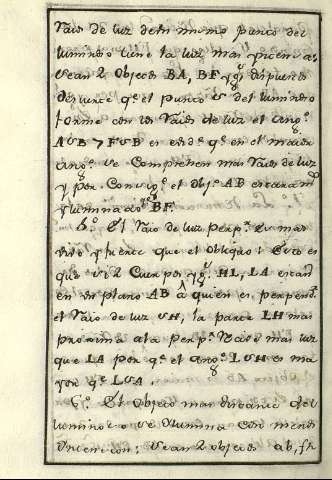 Raio de luz de un mismo punto del
luminoso tiene la luz mas
Sean 2 objetos BA, BF ygs. dispuestos
de suerte qe. el punto S del luminoso
forme con los Raios de luz el ango.
ASB > FSB es evidte. qe. en el maior
ango. se comprehenden mas Raios de luz
y por consigte. el objo. AB estara ms.
yluminado qe. BF.
5o. El Raio de luz perpr. es mas
vivo y fuerte que el obliquo: Esto es
que si 2 Cuerpos ygs. HL, LA estan
en un plano AB á quien es perpendr.
el Raio de luz SH, la parte LH mas
proxima a la perpr. Recive mas luz
que LA por qe. el ango. LSH es ma
yor qe. LSA.
6o. El objeto mas distante del
luminoso se ilumina con menos
Sean 2 objetos ab, fh